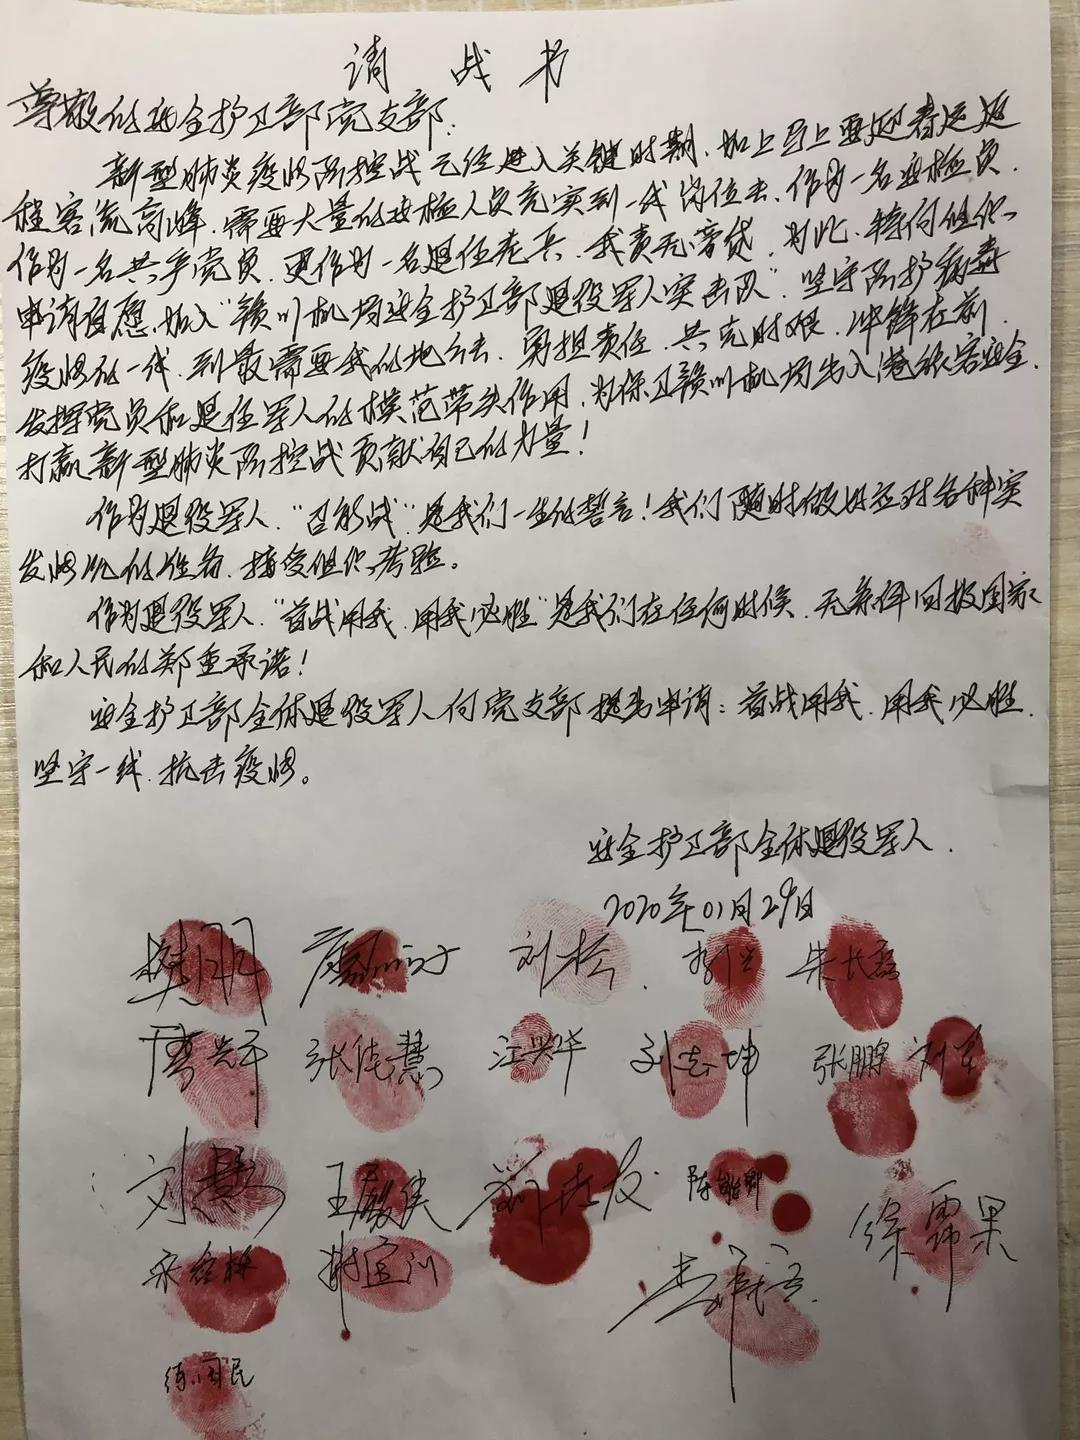 请战书
尊敬的安全护卫部党支部:
新型肺炎疫情防控战已经进入关键时期,加上马上要迎春运返
程客流高峰,需要大量的安检人员充实到一线岗位去,作为一名安检员,
作为一名共产党员,更作为一名退伍老兵,我责无旁贷,对此,特向组织
申请自愿加入“赣州机场安全护卫部退役军人突击队”,坚守防护病毒
疫情的一线,到最需要我的地方去,勇担责任,共克时艰,冲锋在前,
发挥党员和退伍军人的模范带头作用,为保卫赣州机场出入港旅客安全,
打赢新型肺炎防控战贡献自己的力量!
作为退役军人,“召能战”是我们一生的誓言!我们随时做好应对各种突
发情况的准备,接受组织考验。
作为退役军人,“首战用我,用我必胜”是我们在任何时候,无条件回报国家
和人民的郑重承诺!
安全护卫部全体退役军人向党支部提出申请:首战用我,用我必胜,
坚守一线,抗击疫情。
安全护卫部全体退役军人.
2020年01月29日
樊明 刘松 朱长磊
张佳慧 江兴华 刘志坤 张鹏 刘军
刘慧 王殿侯
谢宝训 徐霈果
练国民